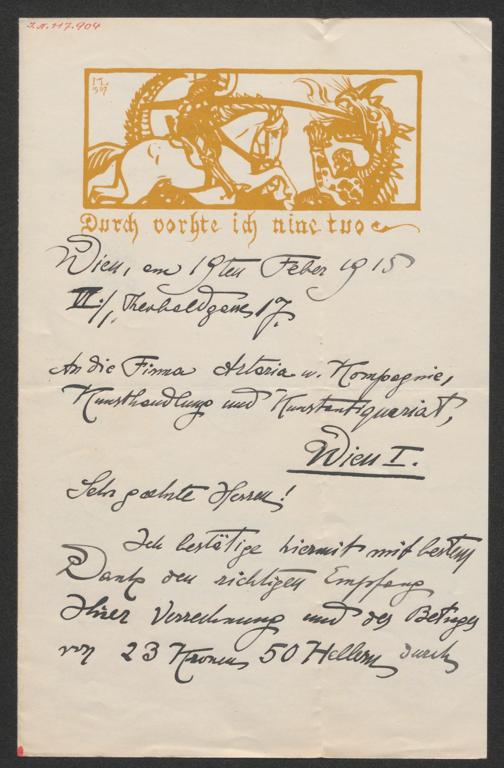 I.N. 117.904
Durch vorhte ich nine tuo
Wien, am 19ten Feber 1915
VI./, Theobaldgasse 17.
An die Firma Artaria u. Kompagnie,
Kunsthandlung und Kunstantiquariat,
Wien I.
Sehr geehrte Herren!
Ich bestätige hiermit mit bestem
Dank den richtigen Empfang
Ihrer Verrechnung und des Betrages
von 23 Kronen 50 Hellern durch